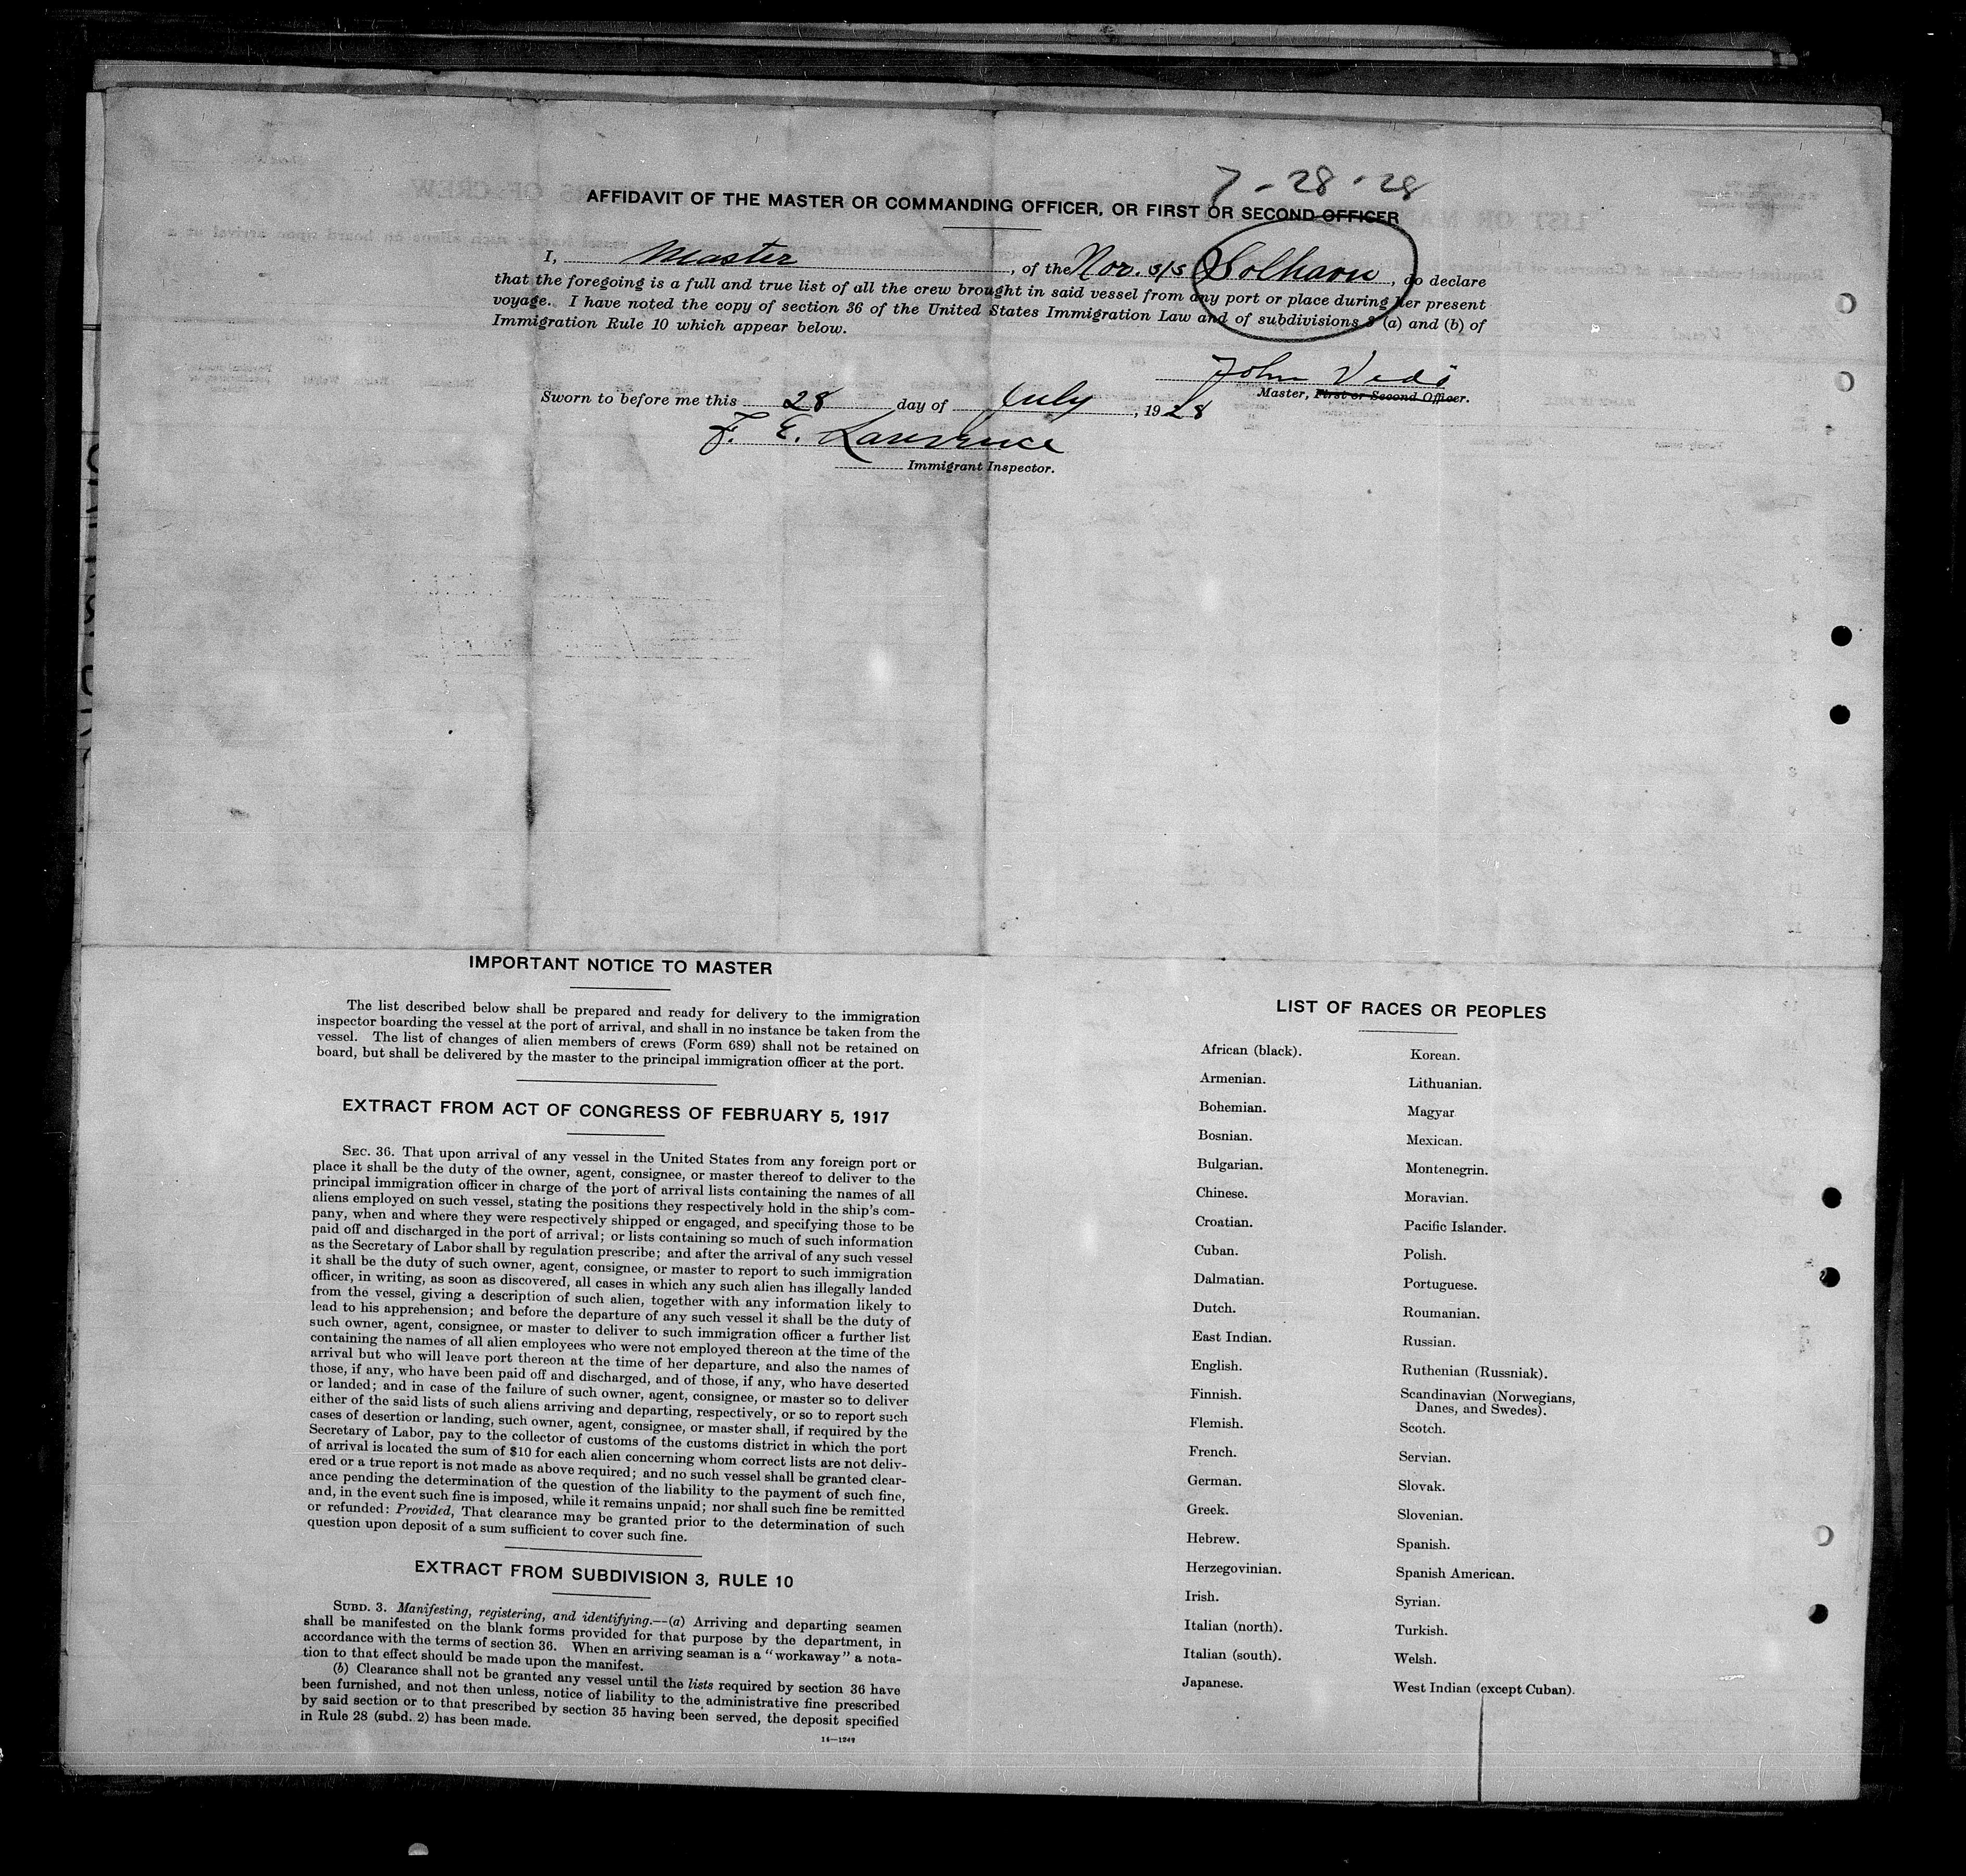 7 - 28 - 28
AFFIDAVIT OF THE MASTER OR COMMANDING OFFICER, OR FIRST OR SECOND OFFICER
I, Master, of the Nor. S/S Solhavn, do declare
that the foregoing is a full and true list of all the crew brought in said vessel from any port or place during her present
voyage. I have noted the copy of section 36 of the United States Immigration Law and of subdivisions 3 (a) and (b) of
Immigration Rule 10 which appear below.
John
Master, First or Second Officer.
Sworn to before me this 28 day of July, 1928
F. E. Lawrence
Immigrant Inspector.
IMPORTANT NOTICE TO MASTER
The list described below shall be prepared and ready for delivery to the immigration
inspector boarding the vessel at the port of arrival, and shall in no instance be taken from the
vessel. The list of changes of alien members of crews (Form 689) shall not be retained on
board, but shall be delivered by the master to the principal immigration officer at the port.
EXTRACT FROM ACT OF CONGRESS OF FEBRUARY 5, 1917
SEC. 36. That upon arrival of any vessel in the United States from any foreign port or
place it shall be the duty of the owner, agent, consignee, or master thereof to deliver to the
principal immigration officer in charge of the port of arrival lists containing the names of all
aliens employed on such vessel, stating the positions they respectively hold in the ship's com-
pany, when and where they were respectively shipped or engaged, and specifying those to be
paid off and discharged in the port of arrival; or lists containing so much of such information
as the Secretary of Labor shall by regulation prescribe; and after the arrival of any such vessel
it shall be the duty of such owner, agent, consignee, or master to report to such immigration
officer, in writing, as soon as discovered, all cases in which any such alien has illegally landed
from the vessel, giving a description of such alien, together with any information likely to
lead to his apprehension; and before the departure of any such vessel it shall be the duty of
such owner, agent, consignee, or master to deliver to such immigration officer a further list
containing the names of all alien employees who were not employed thereon at the time of the
arrival but who will leave port thereon at the time of her departure, and also the names of
those, if any, who have been paid off and discharged, and of those, if any, who have deserted
or landed; and in case of the failure of such owner, agent, consignee, or master so to deliver
either of the said lists of such aliens arriving and departing, respectively, or so to report such
cases of desertion or landing, such owner, agent, consignee, or master shall, if required by the
Secretary of Labor, pay to the collector of customs of the customs district in which the port
of arrival is located the sum of $10 for each alien concerning whom correct lists are not deliv-
ered or a true report is not made as above required; and no such vessel shall be granted clear-
ance pending the determination of the question of the liability to the payment of such fine,
and, in the event such fine is imposed, while it remains unpaid; nor shall such fine be remitted
or refunded: Provided, That clearance may be granted prior to the determination of such
question upon deposit of a sum sufficient to cover such fine.
EXTRACT FROM SUBDIVISION 3, RULE 10
SUBD. 3. Manifesting, registering, and identifying.—(a) Arriving and departing seamen
shall be manifested on the blank forms provided for that purpose by the department, in
accordance with the terms of section 36. When an arriving seaman is a "workaway" a nota-
tion to that effect should be made upon the manifest.
(b) Clearance shall not be granted any vessel until the lists required by section 36 have
been furnished, and not then unless, notice of liability to the administrative fine prescribed
by said section or to that prescribed by section 35 having been served, the deposit specified
in Rule 28 (subd. 2) has been made.
14—1249
LIST OF RACES OR PEOPLES
African (black).
Armenian.
Bohemian.
Bosnian.
Bulgarian.
Chinese.
Croatian.
Cuban.
Dalmatian.
Dutch.
East Indian.
English.
Finnish.
Flemish.
French.
German.
Greek.
Hebrew.
Herzegovinian.
Irish.
Italian (north).
Italian (south).
Japanese.
Korean.
Lithuanian.
Magyar
Mexican.
Montenegrin.
Moravian.
Pacific Islander.
Polish.
Portuguese.
Roumanian.
Russian.
Ruthenian (Russniak).
Scandinavian (Norwegians,
Danes, and Swedes).
Scotch.
Servian.
Slovak.
Slovenian.
Spanish.
Spanish American.
Syrian.
Turkish.
Welsh.
West Indian (except Cuban).